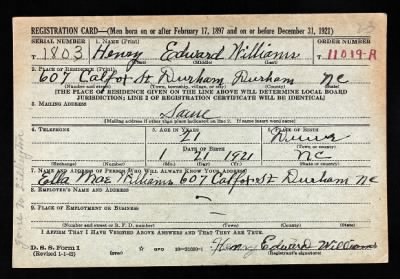 REGISTRATION CARD—(Men born on or after February 17, 1897 and on or before December 31, 1921)
SERIAL NUMBER 1. NAME (Print) ORDER NUMBER
T 1803 Henry Edward Williams 11019-A
(First) (Middle) (Last)
2. PLACE OF RESIDENCE (Print)
607 St Durham Durham NC
(Number and street) (Town, township, village, or city) (County) (State)
[THE PLACE OF RESIDENCE GIVEN ON THE LINE ABOVE WILL DETERMINE LOCAL BOARD
JURISDICTION; LINE 2 OF REGISTRATION CERTIFICATE WILL BE IDENTICAL]
3. MAILING ADDRESS
Same
[Mailing address if other than place indicated on line 2. If same insert word same]
4. TELEPHONE 5. AGE IN YEARS 6. PLACE OF BIRTH
21
DATE OF BIRTH
(Town or county)
1 21 1921 NC
(Exchange) (Number) (Mo.) (Day) (Yr.) (State or country)
7. NAME AND ADDRESS OF PERSON WHO WILL ALWAYS KNOW YOUR ADDRESS
Ella Mae Williams 607 St Durham NC
8. EMPLOYER'S NAME AND ADDRESS
9. PLACE OF EMPLOYMENT OR BUSINESS
(Number and street or R. F. D. number) (Town) (County) (State)
I AFFIRM THAT I HAVE VERIFIED ABOVE ANSWERS AND THAT THEY ARE TRUE.
D. S. S. Form 1
(Revised 1-1-42) GPO 16—21630-1 Henry Edward Williams
(Registrant's signature)